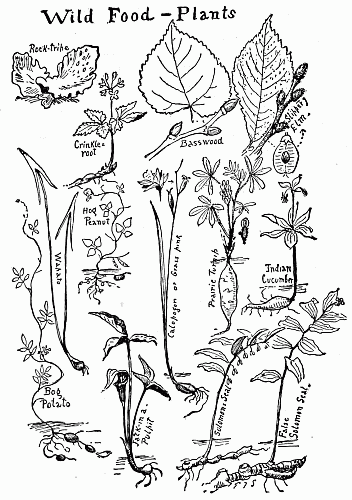 Wild Food-Plants
Rock-tripe
Crinkle-
root
Basswood
Slippery
Elm.
Hog
Peanut
Wapato
Calopogon or Grass pink
Prairie Turnip
Indian
Cucumber
Bog
Potato
Jack-in-a-
Pulpit
Solomons Seal
False
Solomon Seal.